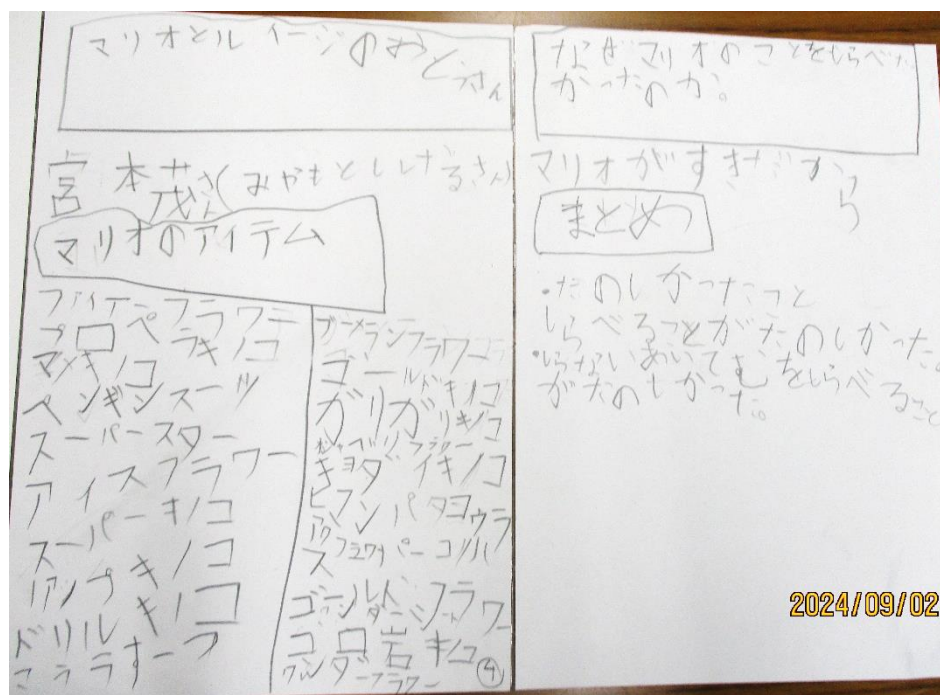 マリオとルイージのおとうさん
宮本茂さん(みやもとししげるさん)
マリオのアイテム
ファイヤーフラワー
プロペラキノコ
マメキノコ
ペンギンスーツ
スーパースター
アイスフラワー
スーパーキノコ
リフトアップキノコ
ドリルキノコ
こうらすーつ
ブーメランフラワー
ゴールドキノコ
ガリガリキノコ
おしゃべりフラワー
キョダイキノコ
スーパー
ゴールドフラワー
ゴロ岩キノコ
ワンダーフラワー
④
なぜマリオのことをしらべた
かったのか。
マリオがすきだから
まとめ
・たのしかったこと
しらべることがたのしかった。
・しらないあいてむをしらべること
がたのしかった。
2024/09/02